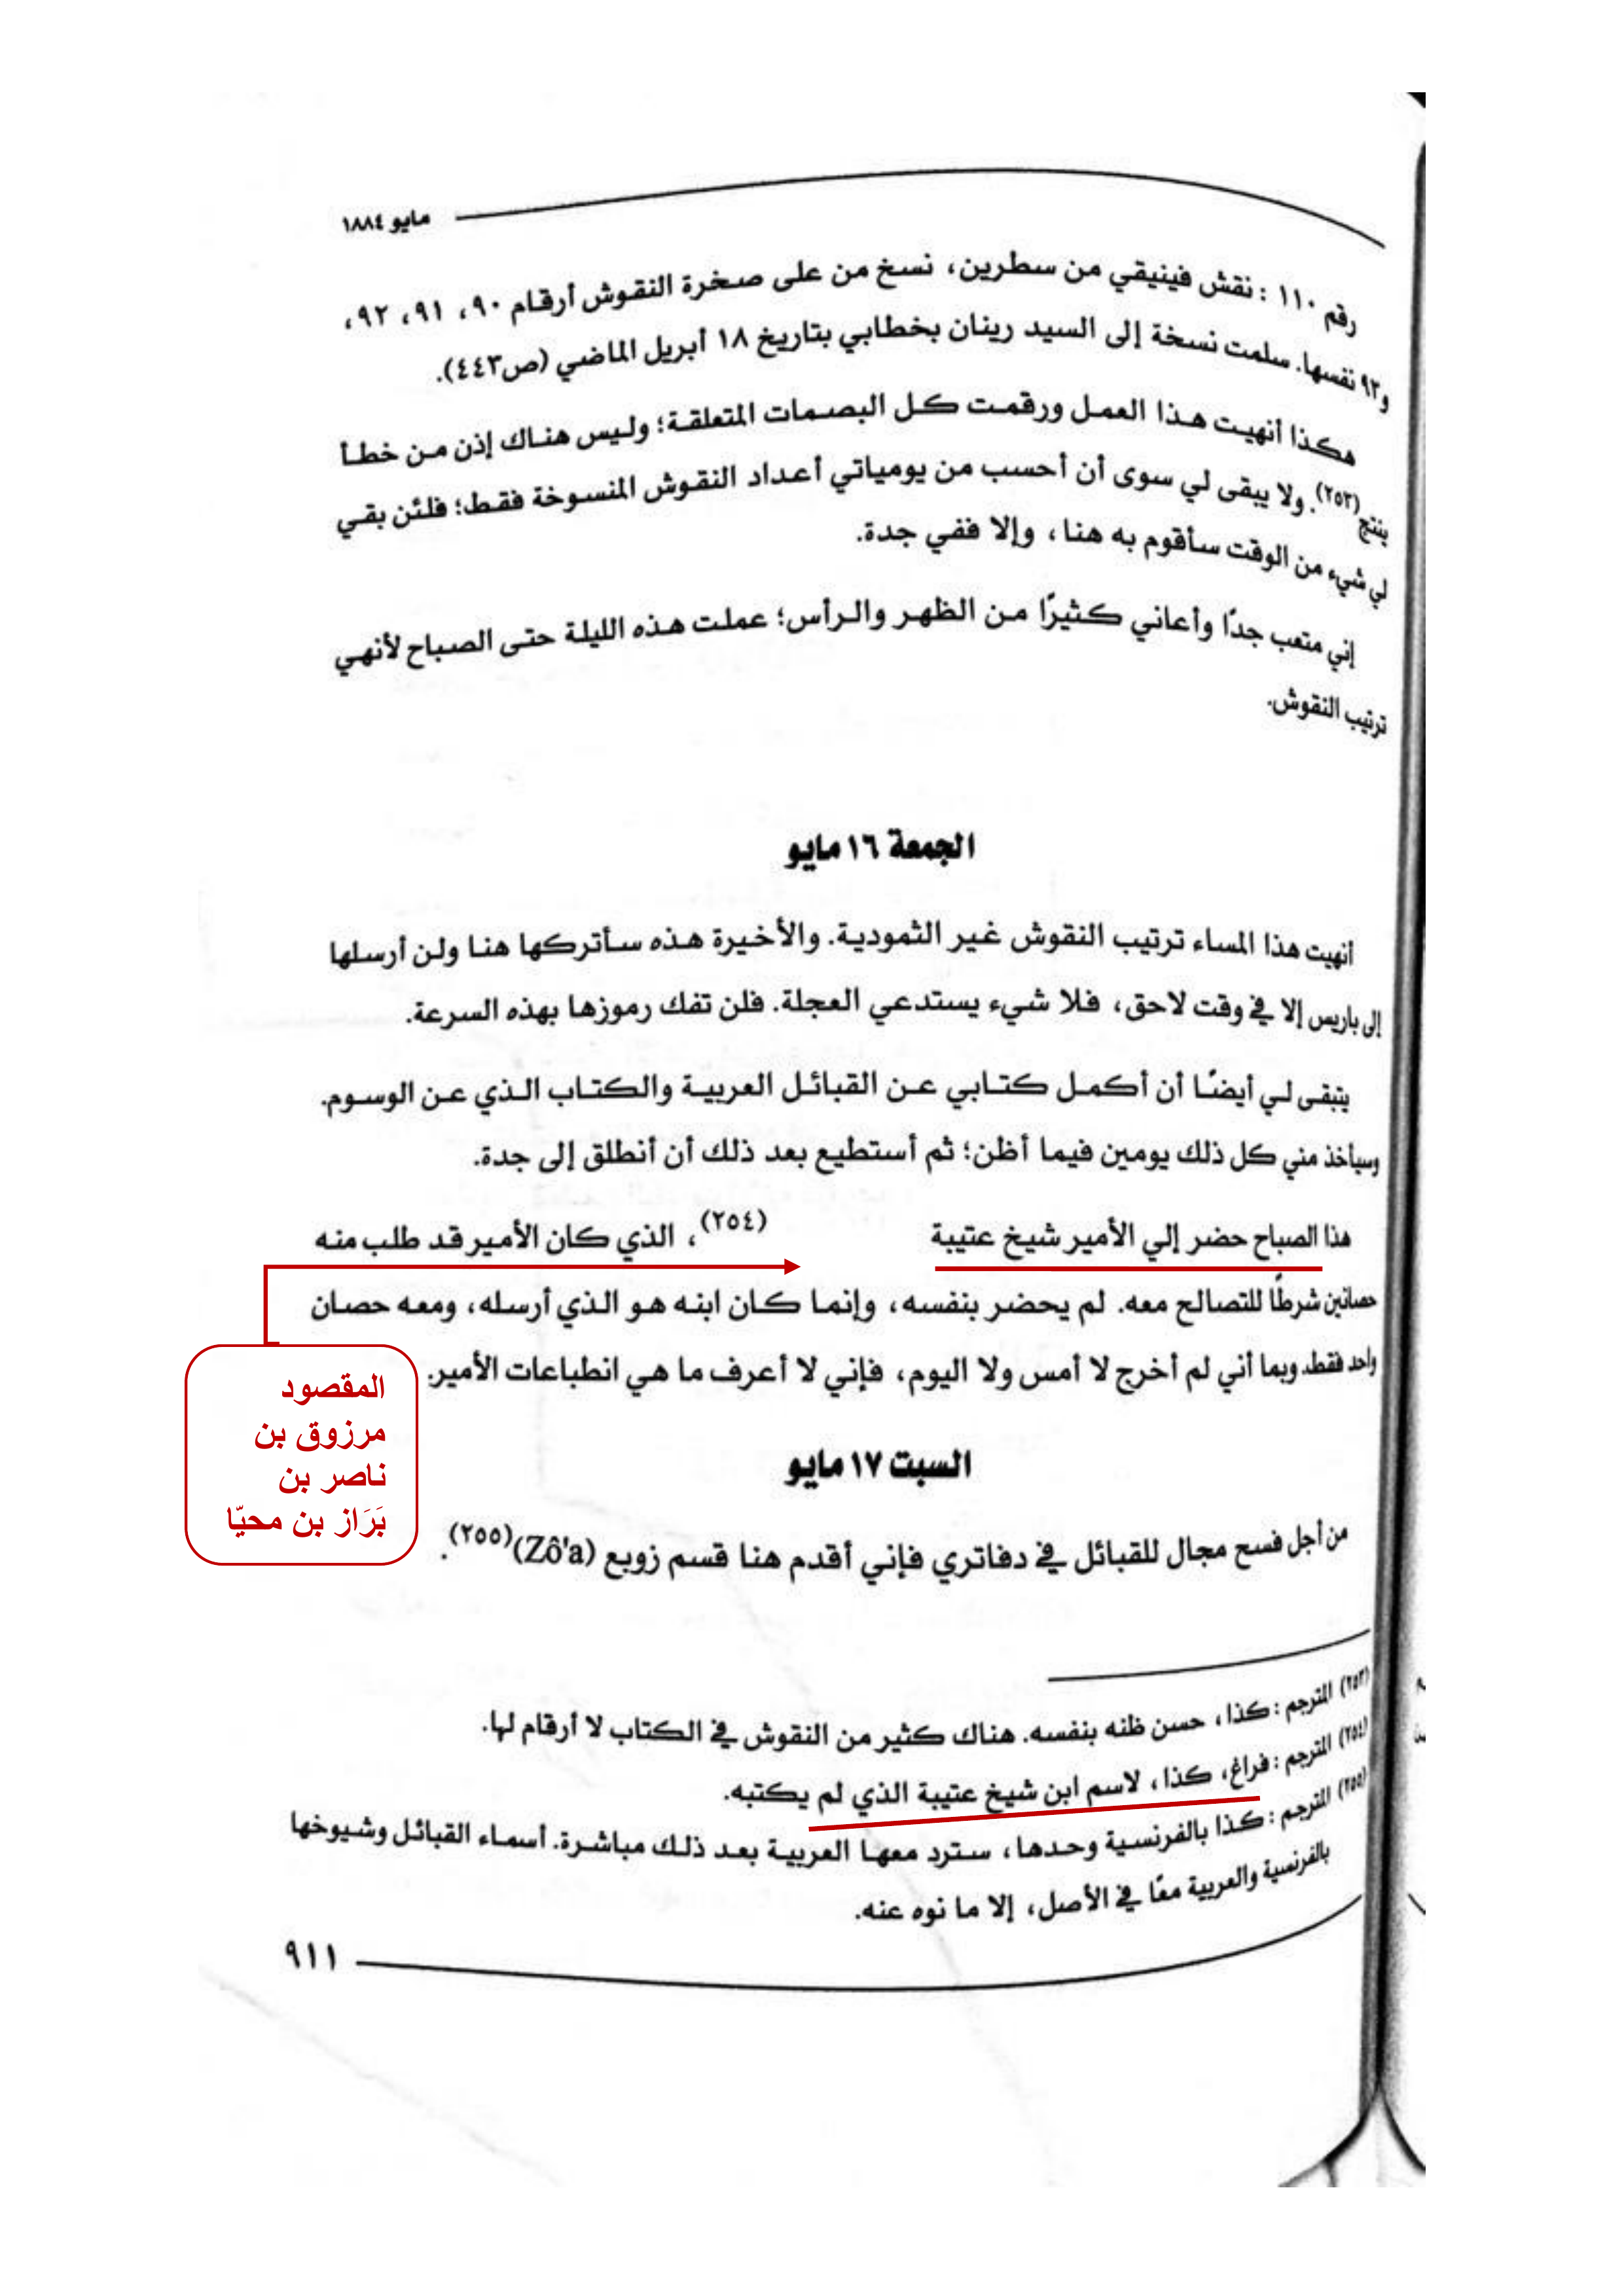 مايو ١٨٨٤
رقم ١١٠ : نقش فينيقي من سطرين، نسخ من على صخرة النقوش أرقام ٩٠، ٩١، ٩٢،
و٩٣ نفسها. سلمت نسخة إلى السيد رينان بخطابي بتاريخ ١٨ أبريل الماضي (ص٤٤٣).
هكذا أنهيت هذا العمل ورقمت كل البصمات المتعلقة؛ وليس هناك إذن من خطأ
ينتج(٢٥٣). ولا يبقى لي سوى أن أحسب من يومياتي أعداد النقوش المنسوخة فقط؛ فلئن بقي
لي شيء من الوقت سأقوم به هنا، وإلا ففي جدة.
إني متعب جدًا وأعاني كثيرًا من الظهر والرأس؛ عملت هذه الليلة حتى الصباح لأنهي
ترتيب النقوش.
الجمعة ١٦ مايو
أنهيت هذا المساء ترتيب النقوش غير الثمودية. والأخيرة هذه سأتركها هنا ولن أرسلها
إلى باريس إلا في وقت لاحق، فلا شيء يستدعي العجلة. فلن تفك رموزها بهذه السرعة.
يتبقى لي أيضًا أن أكمل كتابي عن القبائل العربية والكتاب الذي عن الوسوم.
وسيأخذ مني كل ذلك يومين فيما أظن؛ ثم أستطيع بعد ذلك أن أنطلق إلى جدة.
هذا الصباح حضر إلي الأمير شيخ عتيبة (٢٥٤)، الذي كان الأمير قد طلب منه
حصانين شرطًا للتصالح معه. لم يحضر بنفسه، وإنما كان ابنه هو الذي أرسله، ومعه حصان
واحد فقط. وبما أني لم أخرج لا أمس ولا اليوم، فإني لا أعرف ما هي انطباعات الأمير.
المقصود
مرزوق بن
ناصر بن
بَرَاز بن محيّا
السبت ١٧ مايو
من أجل فسح مجال للقبائل في دفاتري فإني أقدم هنا قسم زوبع (Zô'a)(٢٥٥).
(٢٥٣) المترجم : كذا، حسن ظنه بنفسه. هناك كثير من النقوش في الكتاب لا أرقام لها.
(٢٥٤) المترجم : فراغ، كذا، لاسم ابن شيخ عتيبة الذي لم يكتبه.
(٢٥٥) المترجم : كذا بالفرنسية وحدها، سترد معها العربية بعد ذلك مباشرة. أسماء القبائل وشيوخها
بالفرنسية والعربية معًا في الأصل، إلا ما نوه عنه.
٩١١